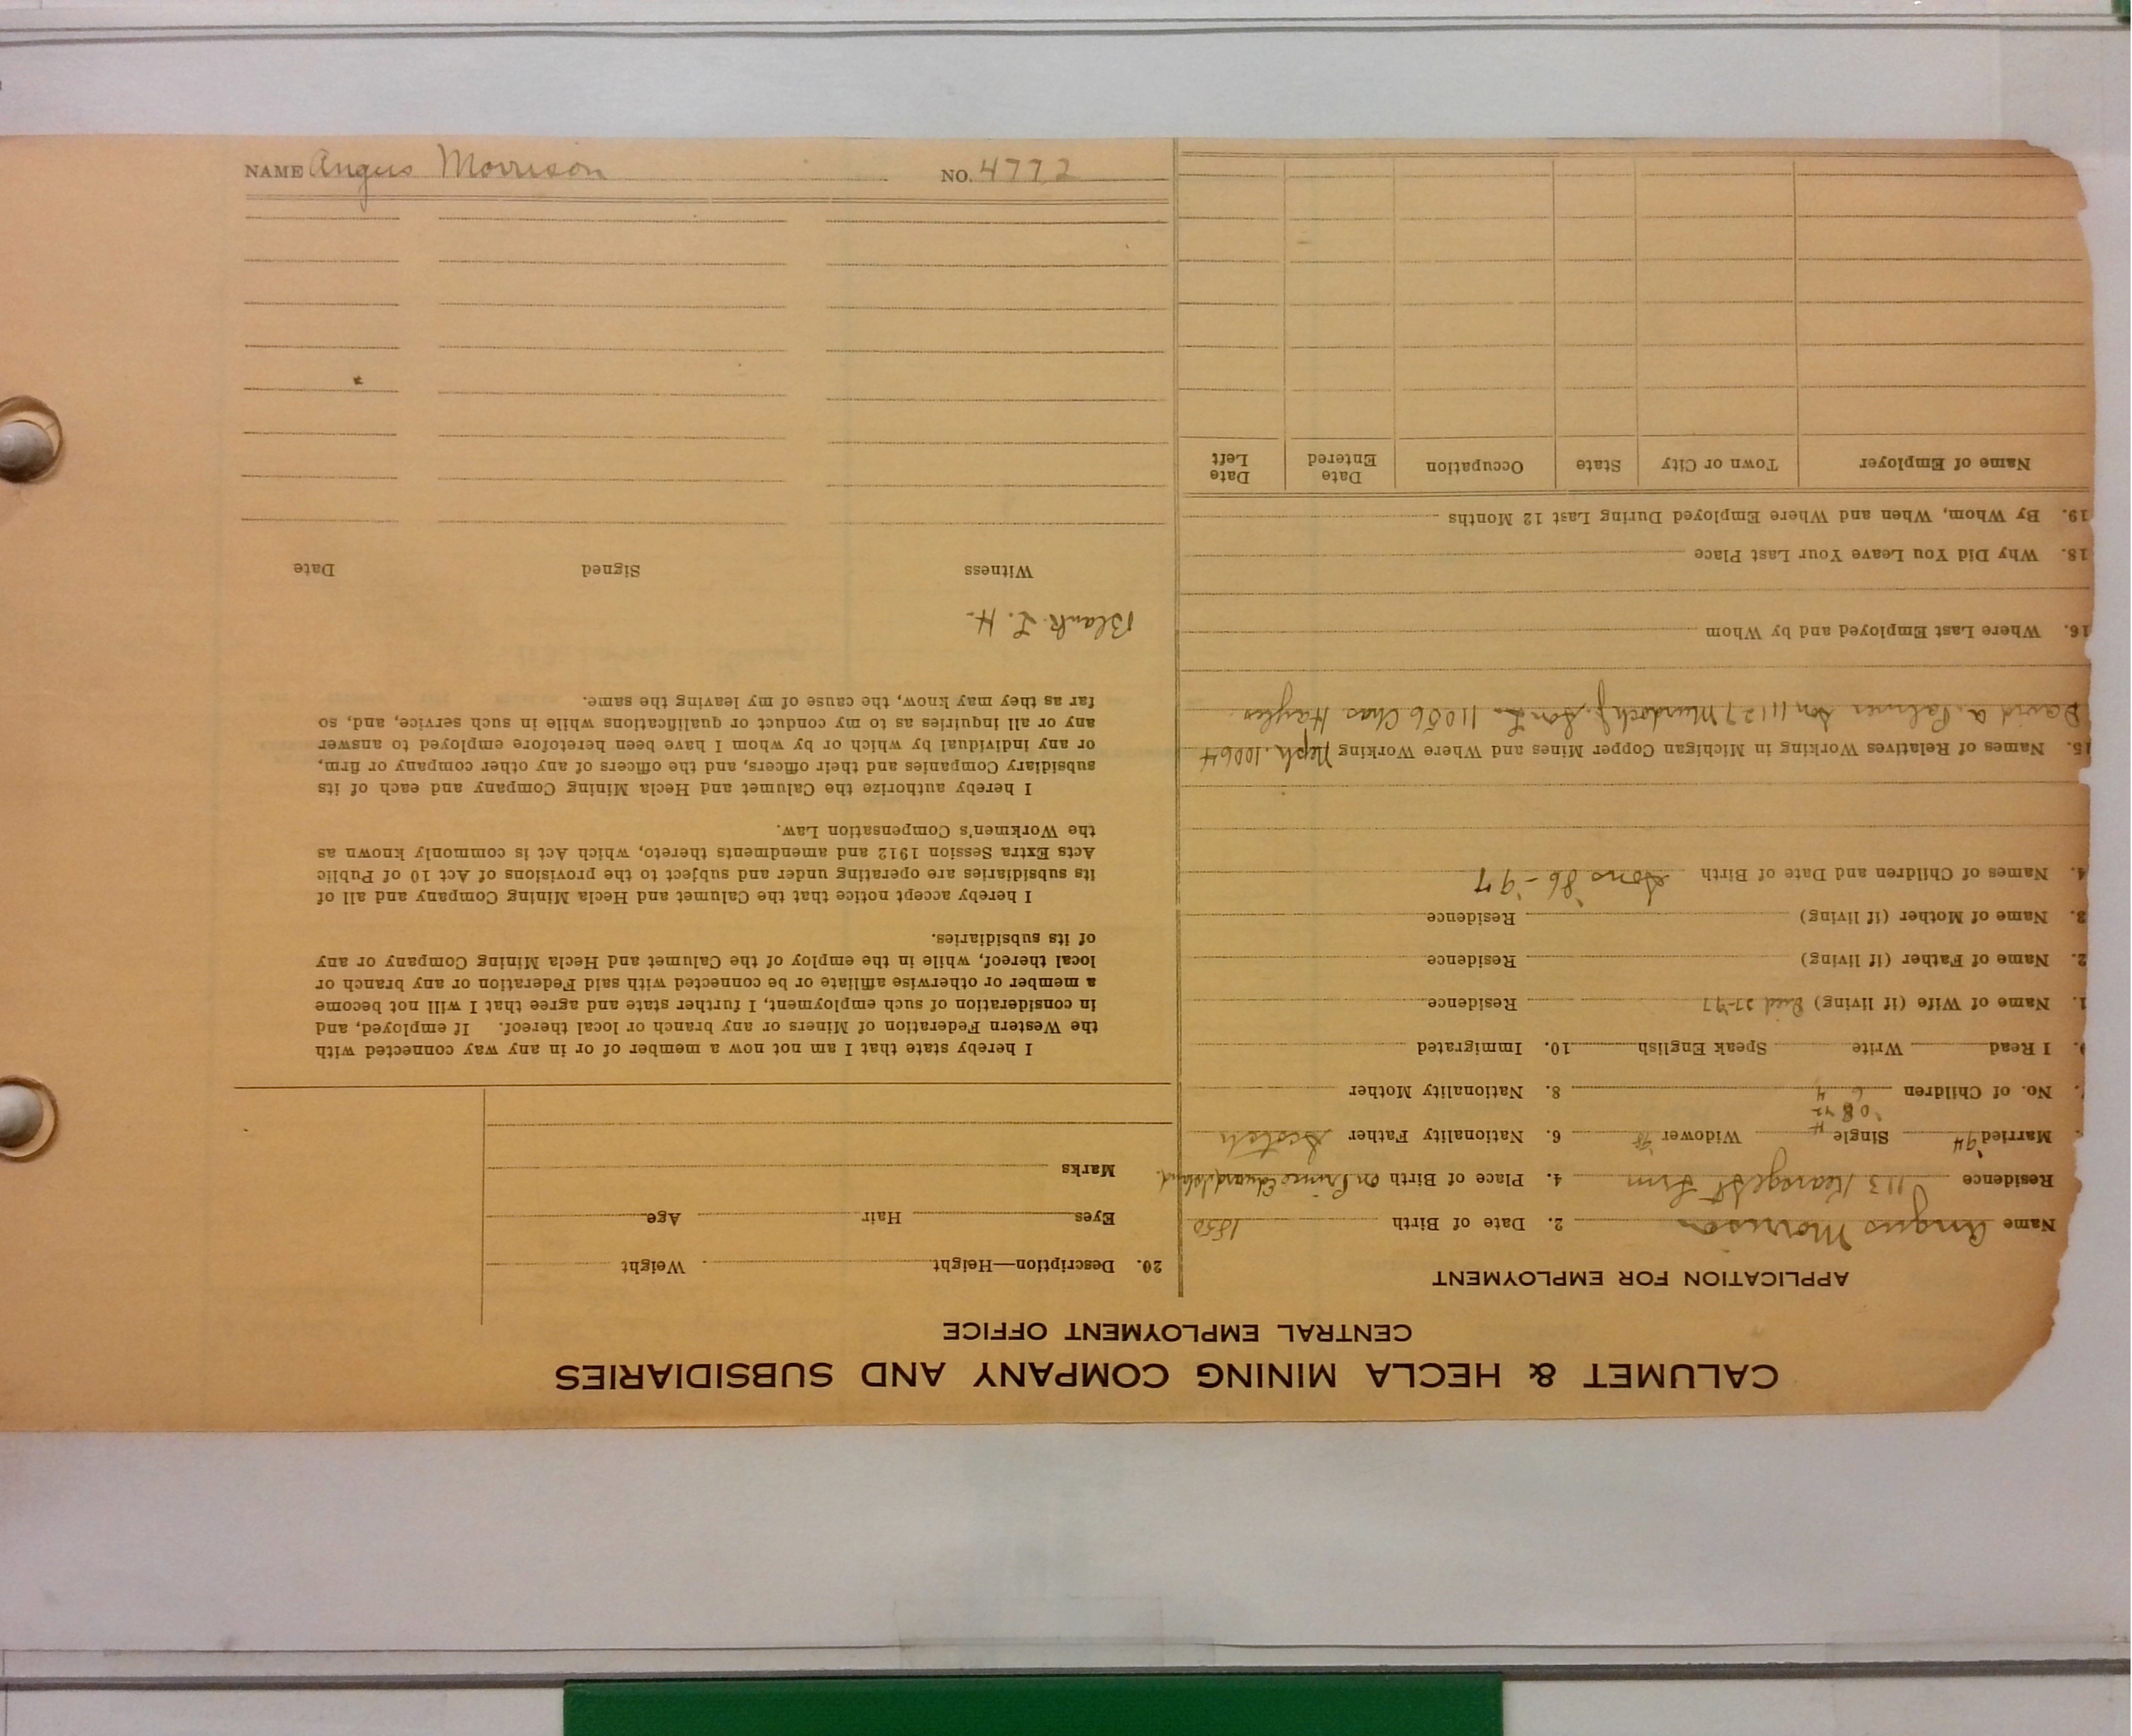 CALUMET & HECLA MINING COMPANY AND SUBSIDIARIES
CENTRAL EMPLOYMENT OFFICE
APPLICATION FOR EMPLOYMENT
Name Angus Morrison 2. Date of Birth 1850
Residence 1113 Kearsge St Lrm 4. Place of Birth On Prince Edward Island
Married '94 Single Widower '98 6. Nationality Father Scotch
'08
No. of Children 6 4 8. Nationality Mother
9. I Read Write Speak English 10. Immigrated
1. Name of Wife (if living) Died 27-97 Residence
2. Name of Father (if living) Residence
3. Name of Mother (if living) Residence
4. Names of Children and Date of Birth Sons '86-'97
15. Names of Relatives Working in Michigan Copper Mines and Where Working Neph. 10064
David A. Palmer Son 11127 Murdoch J. Son L. 11056 Chas Hayles
16. Where Last Employed and by Whom
18. Why Did You Leave Your Last Place
19. By Whom, When and Where Employed During Last 12 Months
Name of Employer Town or City State Occupation Date Entered Date Left
20. Description—Height Weight
Eyes Hair Age
Marks
I hereby state that I am not now a member of or in any way connected with
the Western Federation of Miners or any branch or local thereof. If employed, and
in consideration of such employment, I further state and agree that I will not become
a member or otherwise affiliate or be connected with said Federation or any branch or
local thereof, while in the employ of the Calumet and Hecla Mining Company or any
of its subsidiaries.
I hereby accept notice that the Calumet and Hecla Mining Company and all of
its subsidiaries are operating under and subject to the provisions of Act 10 of Public
Acts Extra Session 1912 and amendments thereto, which Act is commonly known as
the Workmen's Compensation Law.
I hereby authorize the Calumet and Hecla Mining Company and each of its
subsidiary Companies and their officers, and the officers of any other company or firm,
or any individual by which or by whom I have been heretofore employed to answer
any or all inquiries as to my conduct or qualifications while in such service, and, so
far as they may know, the cause of my leaving the same.
Blank L. H.
Witness Signed Date
NAME Angus Morrison NO. 4772